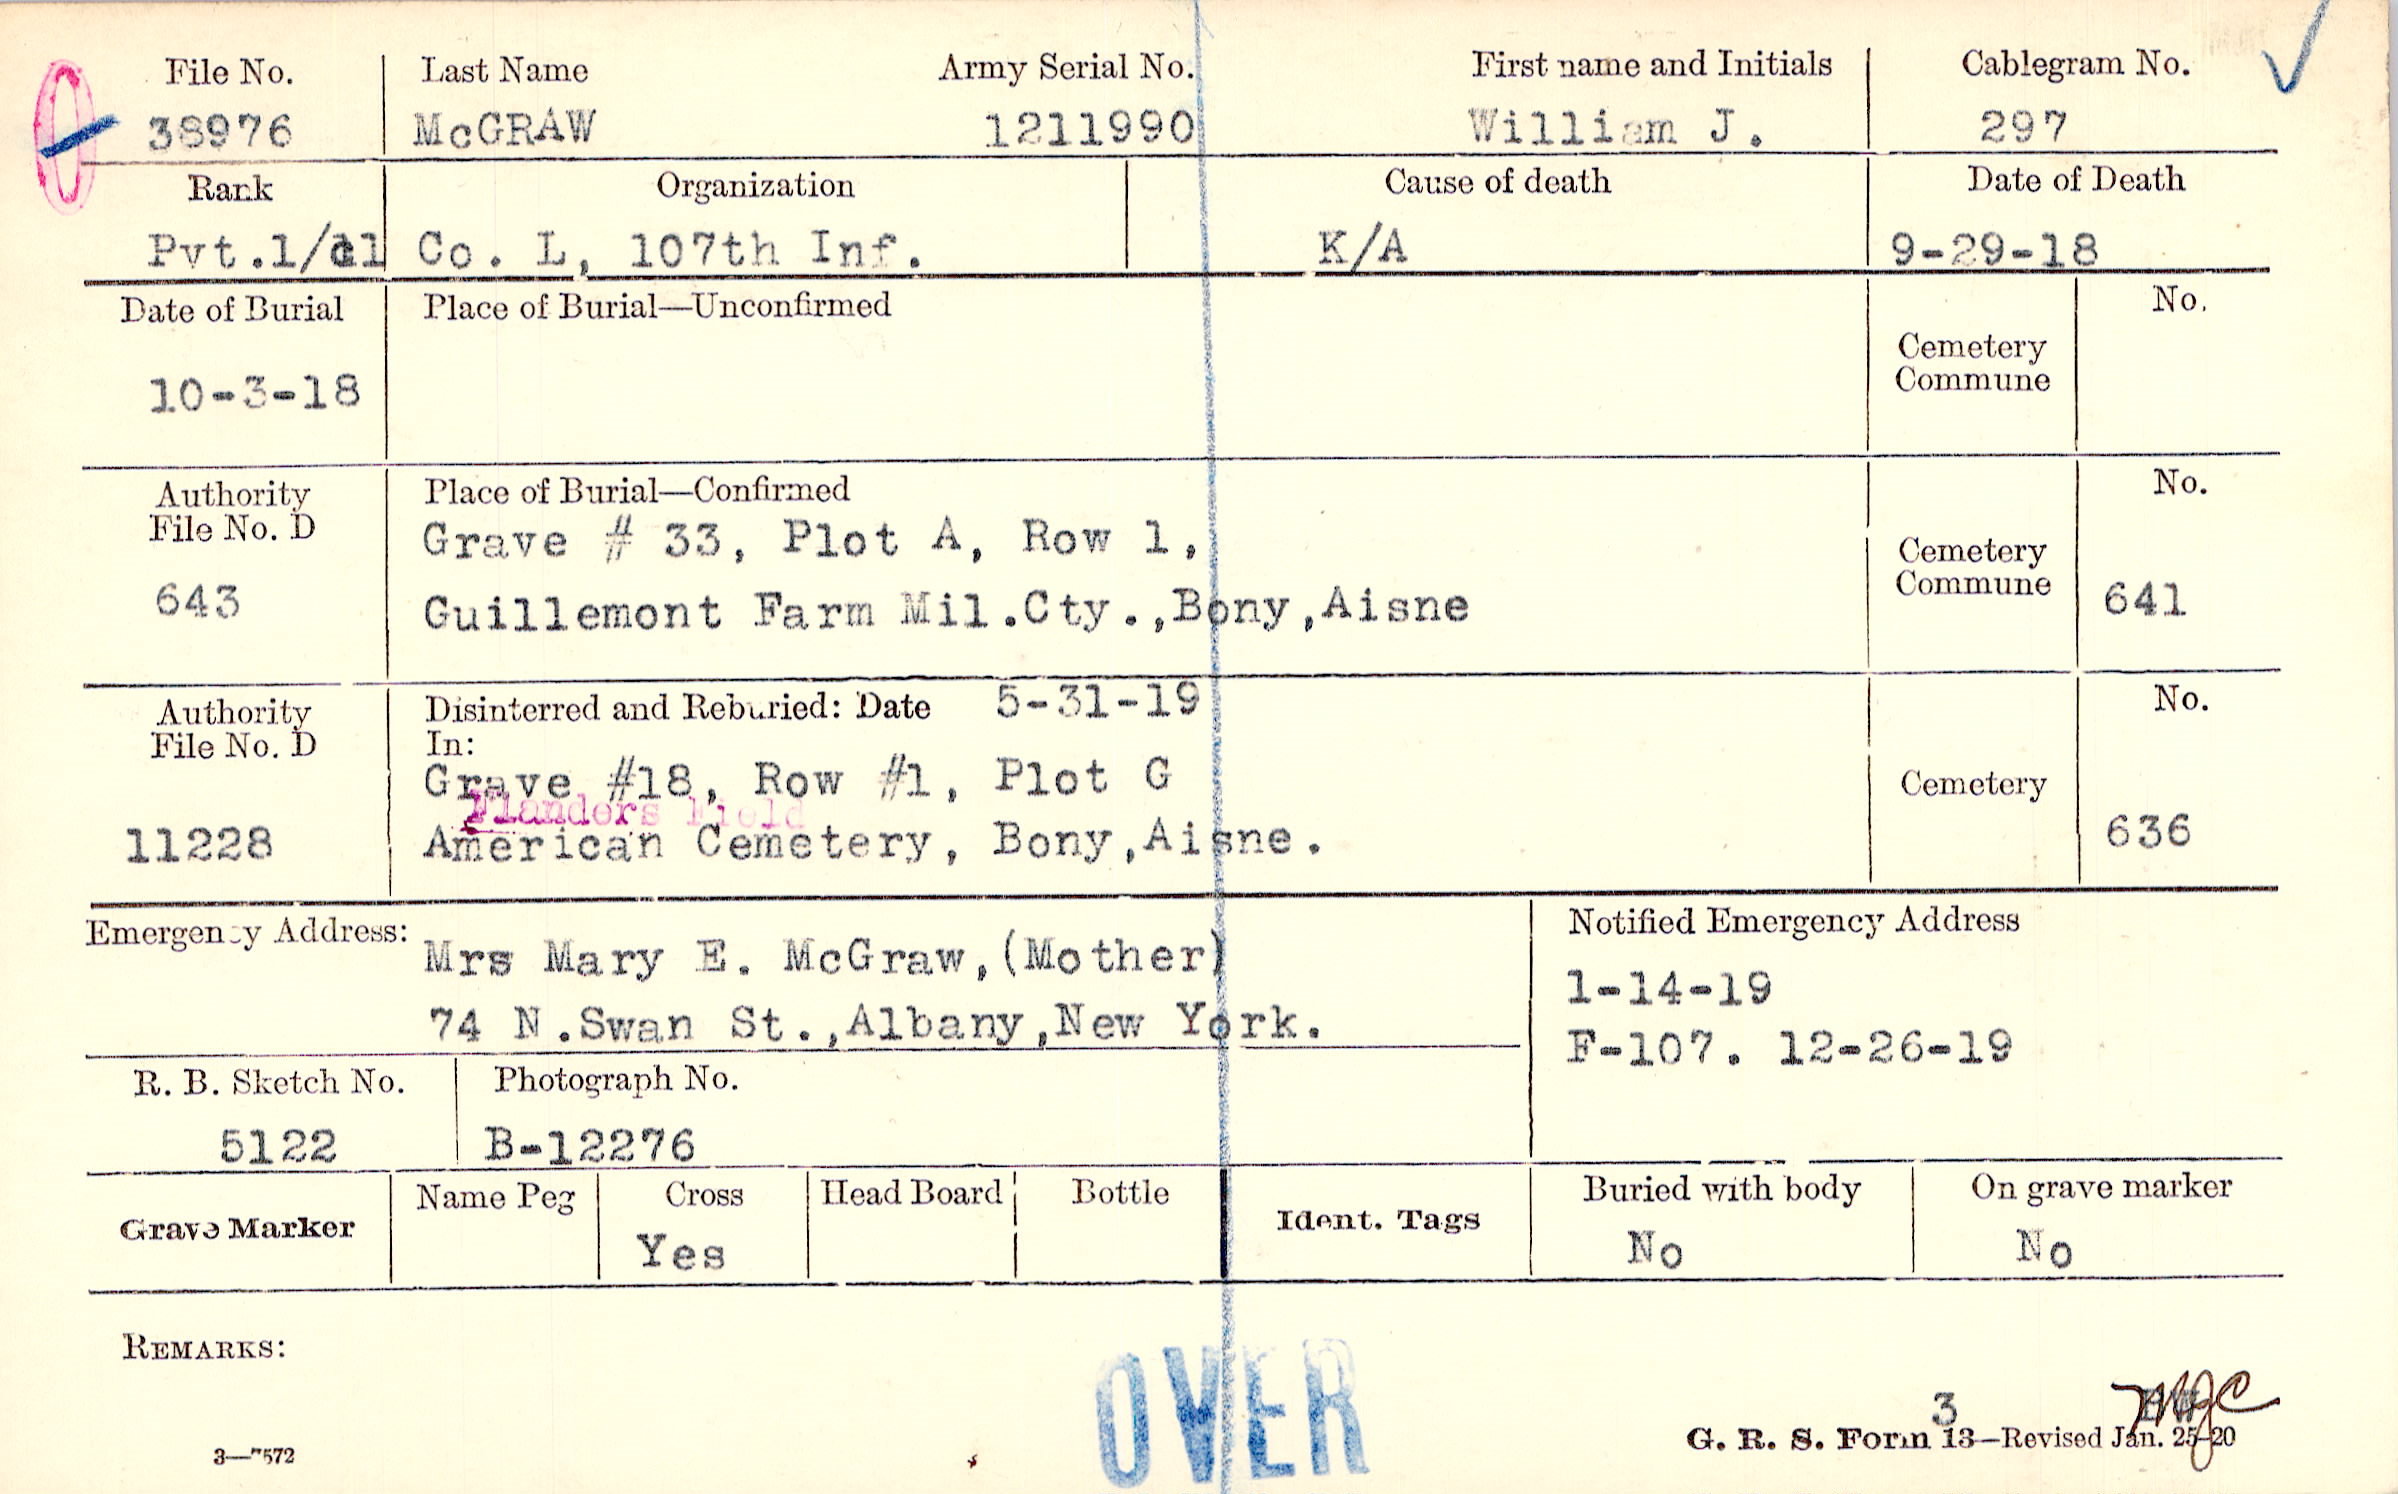 File No. Last Name Army Serial No. First name and Initials Cablegram No.
38976 McGRAW 1211990 William J. 297
Rank Organization Cause of death Date of Death
Pvt.1/cl Co. L, 107th Inf. K/A 9-29-18
Date of Burial Place of Burial—Unconfirmed No.
Cemetery
Commune
10-3-18
Authority Place of Burial—Confirmed No.
File No. D Grave # 33, Plot A, Row 1, Cemetery
Commune
643 Guillemont Farm Mil.Cty.,Bony,Aisne 641
Authority Disinterred and Reburied: Date 5-31-19 No.
File No. D In:
Grave #18, Row #1, Plot G Cemetery
Flanders Field
11228 American Cemetery, Bony,Aisne. 636
Emergency Address: Notified Emergency Address
Mrs Mary E. McGraw,(Mother)
1-14-19
74 N.Swan St.,Albany,New York.
F-107. 12-26-19
R. B. Sketch No. Photograph No.
5122 B-12276
Name Peg Cross Head Board Bottle Buried with body On grave marker
Grave Marker Ident. Tags
Yes No No
REMARKS:
OVER
3
G. R. S. Form 13—Revised Jan. 25-20
3—7572